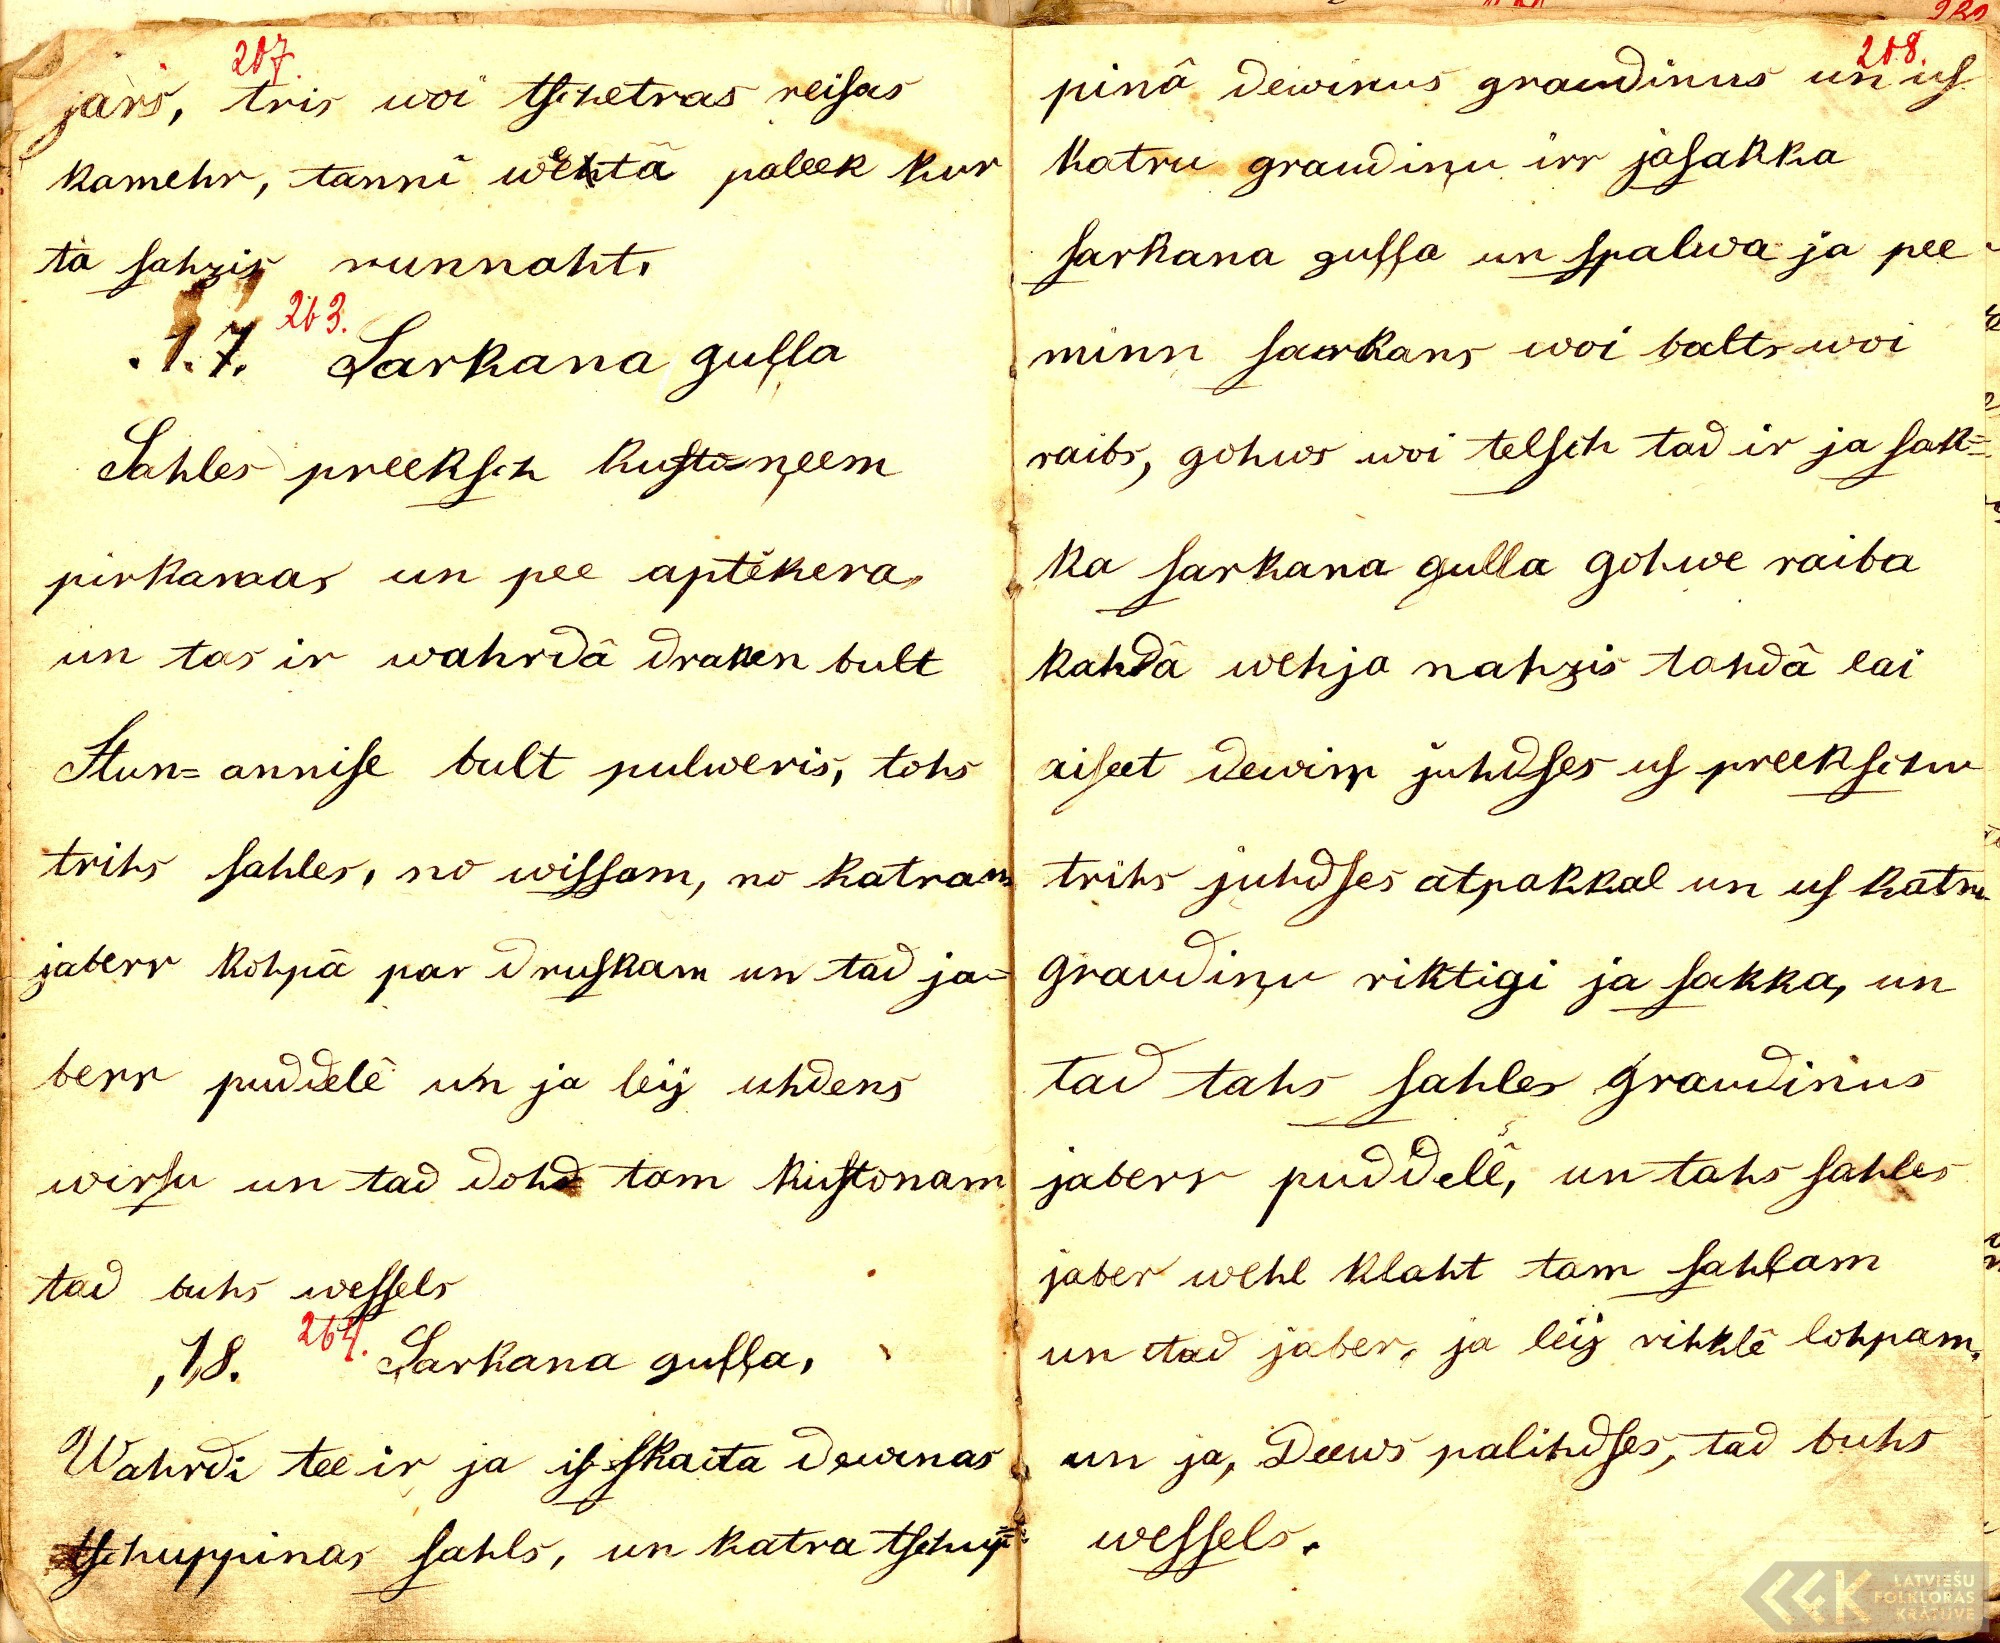 207.
jars, tris woi tschetras reisas
kamehr, tanni wehtâ paleek kur
ta sahzis runnaht.
.17. 263. Sarkana gulla
Sahles preeksch kusto=ņeem
pirkamas un pee aptêkera,
un tas ir wahrdâ draken bult
Stun=annise bult pulweris, tohs
trihs sahles, no wissam, no katram
jaberr kohpâ par druskam un tad ja=
berr puddelê un ja leij uhdens
wirsu un tad dohd tam kustonam
tad buhs wessels
,18. 264. Sarkana gulla,
Wahrdi tee ir ja is-skaita dewinas
tschuppinas sahls, un katra tschup=
208.
pinâ dewinus graudinus un us
katru graudiņu irr jasakka
sarkana gulla un spalwa ja pee-
minn sarkans woi balts woi
raibs, gohws woi telsch tad ir ja sak=
ka sarkana gulla gohwe raiba
kahdâ wehja nahzis tahdâ lai
aiseet dewiņ juhdses us preekschu
trihs juhdses atpakkal un us katru
graudiņu riktigi ja sakka, un
tad tahs sahles graudinus
jaberr puddelê, un tahs sahles
jaber wehl klaht tam sahlam
un tad jaber, ja leij rihklê lohpam,
un ja, Deews palihdses, tad buhs
wessels.
LATVIEŠU
FOLKLORAS
KRĀTUVE